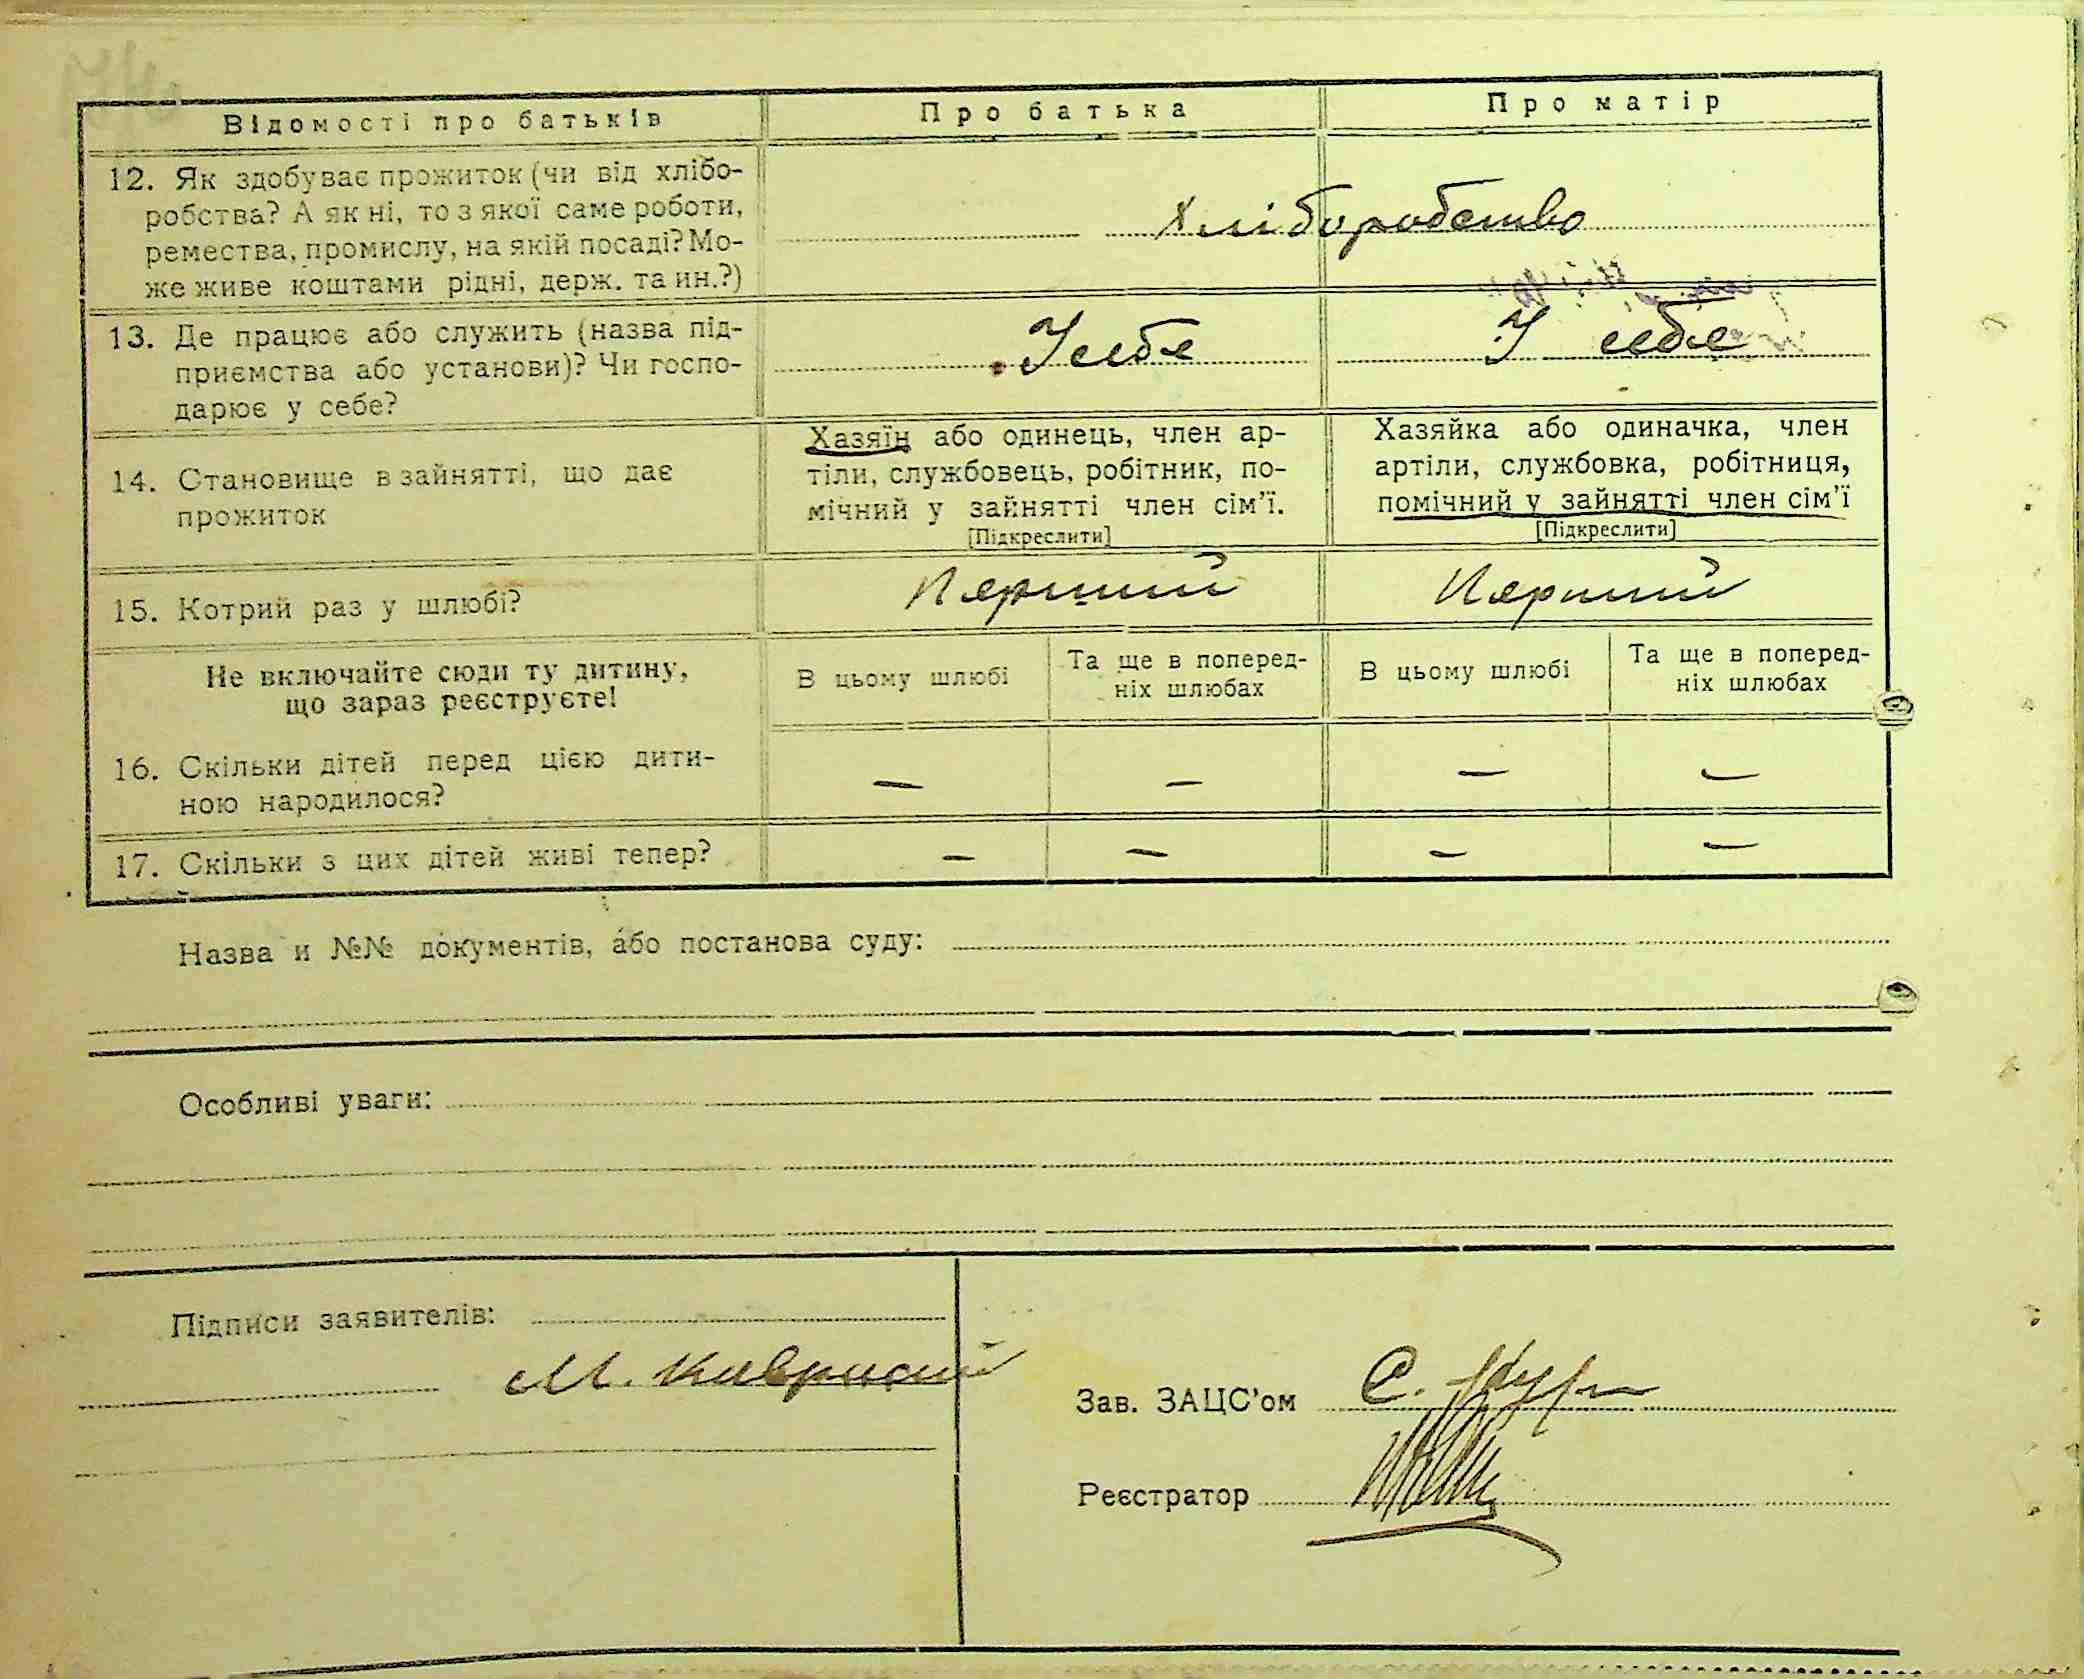 Відомості про батьків
Про батька
Про матір
12. Як здобуває прожиток (чи від хлібо-
робства? А як ні, то з якої саме роботи,
ремества, промислу, на якій посаді? Мо-
же живе коштами рідні, держ. та ин.?)
Хліборобство
13. Де працює або служить (назва під-
приємства або установи)? Чи госпо-
дарює у себе?
У себе
У себе
14. Становище в зайнятті, що дає
прожиток
Хазяїн або одинець, член ар-
тіли, службовець, робітник, по-
мічний у зайнятті член сім'ї.
[Підкреслити]
Хазяйка або одиначка, член
артіли, службовка, робітниця,
помічний у зайнятті член сім'ї
[Підкреслити]
15. Котрий раз у шлюбі?
Перший
Перший
Не включайте сюди ту дитину,
що зараз реєструєте!
В цьому шлюбі
Та ще в поперед-
ніх шлюбах
В цьому шлюбі
Та ще в поперед-
ніх шлюбах
16. Скільки дітей перед цією дити-
ною народилося?
— — — —
17. Скільки з цих дітей живі тепер?
— — — —
Назва и №№ документів, або постанова суду:
Особливі уваги:
Підписи заявителів:
М.
Зав. ЗАЦС'ом С.
Реєстратор